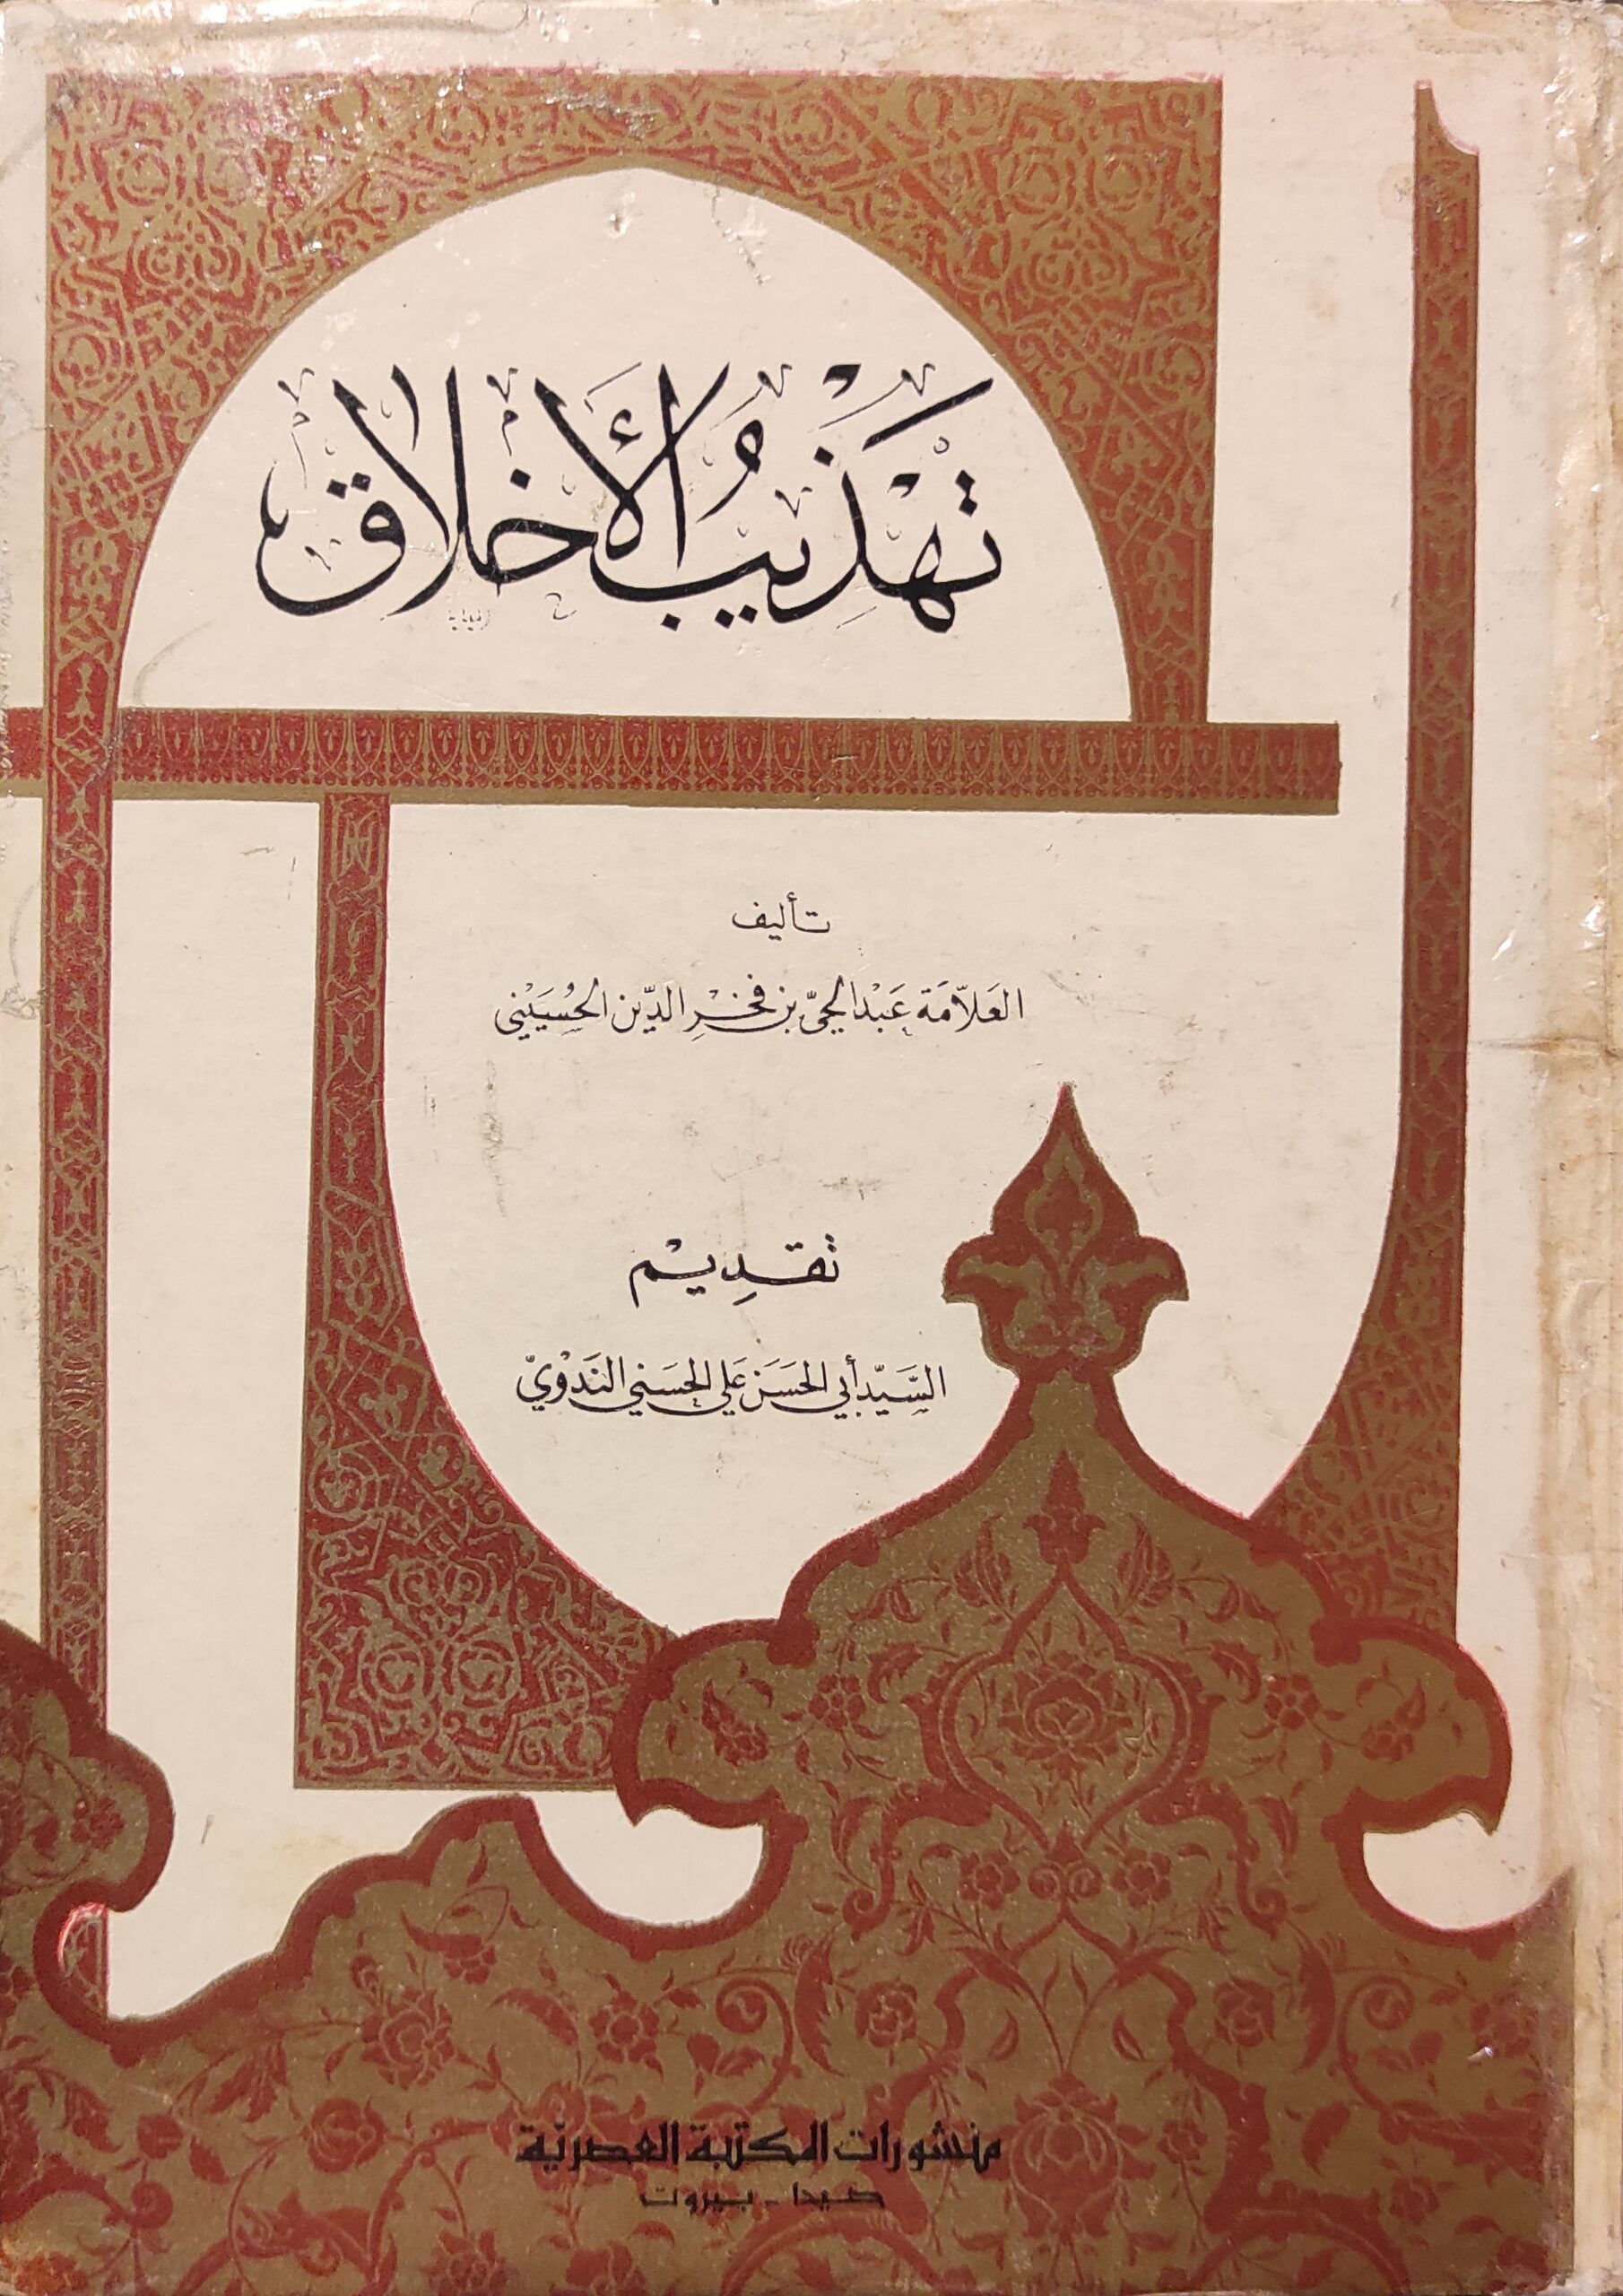 تهذيبُ الأخلاق
تأليف
العَلاّمَة عَبْد الحيّ بن فخْرِ الدّين الحُسَيْني
تقدِيْم
السَّيّد أبي الحَسَن عَلي الحسَني النَدْوِيّ
منشورات المكتبة العصريّة
صيدا - بيروت